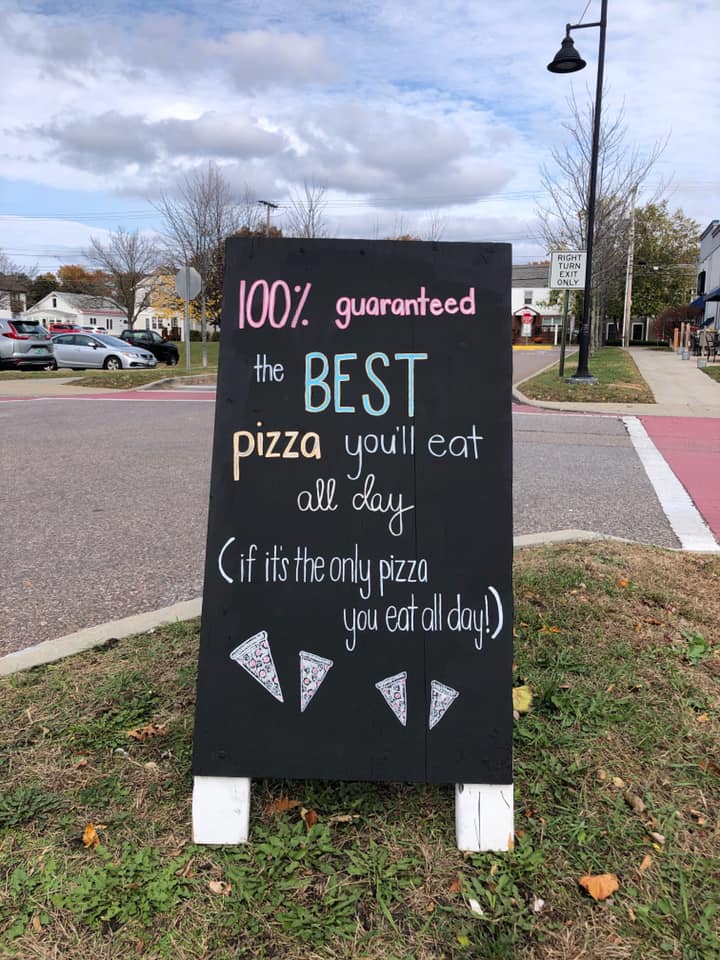 100% guaranteed
the BEST
pizza you'll eat
all day
(if it's the only pizza
you eat all day!)
RIGHT
TURN
EXIT
ONLY